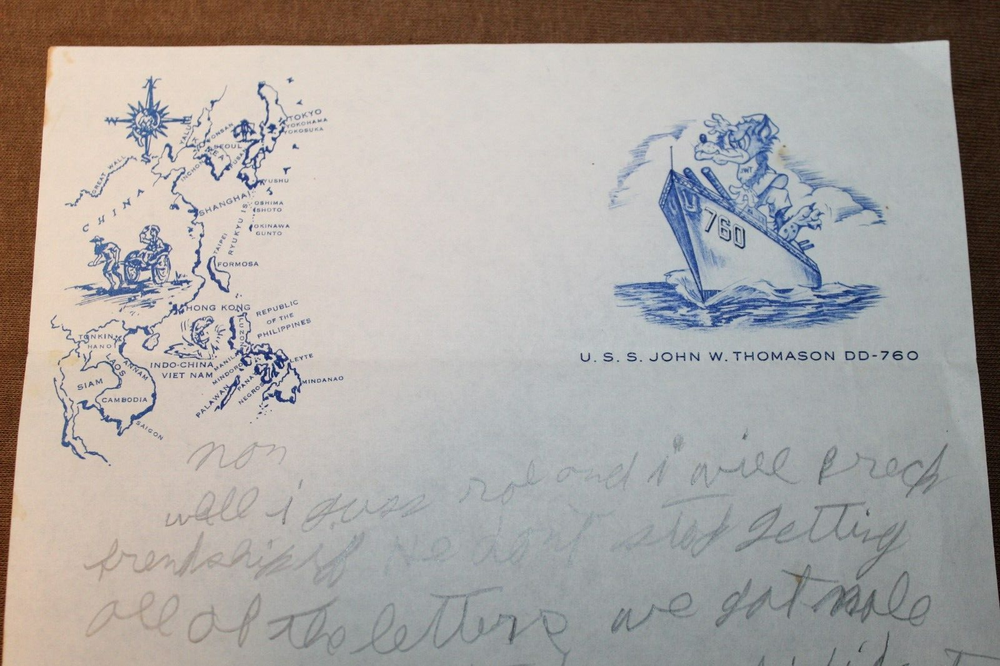 TOKYO
YOKOHAMA
YOKOSUKA
YALU
WONSAN
KOREA
SEOUL
GREAT WALL
CHINA
SHANGHAI
KYUSHU
OSHIMA
SHOTO
RYUKYU IS.
OKINAWA
GUNTO
TAIPEI
FORMOSA
HONG KONG
REPUBLIC
OF THE
PHILIPPINES
LUZON
MANILA
MINDORO
LEYTE
MINDANAO
PALAWAN
PANAY
NEGROS
TONKIN
HANOI
LAOS
ANNAM
INDO-CHINA
VIET NAM
SIAM
CAMBODIA
SAIGON
JWT
760
U. S. S. JOHN W. THOMASON DD-760
well i guss and i will Breck
frendship if He don't stop getting
all of the letters we got